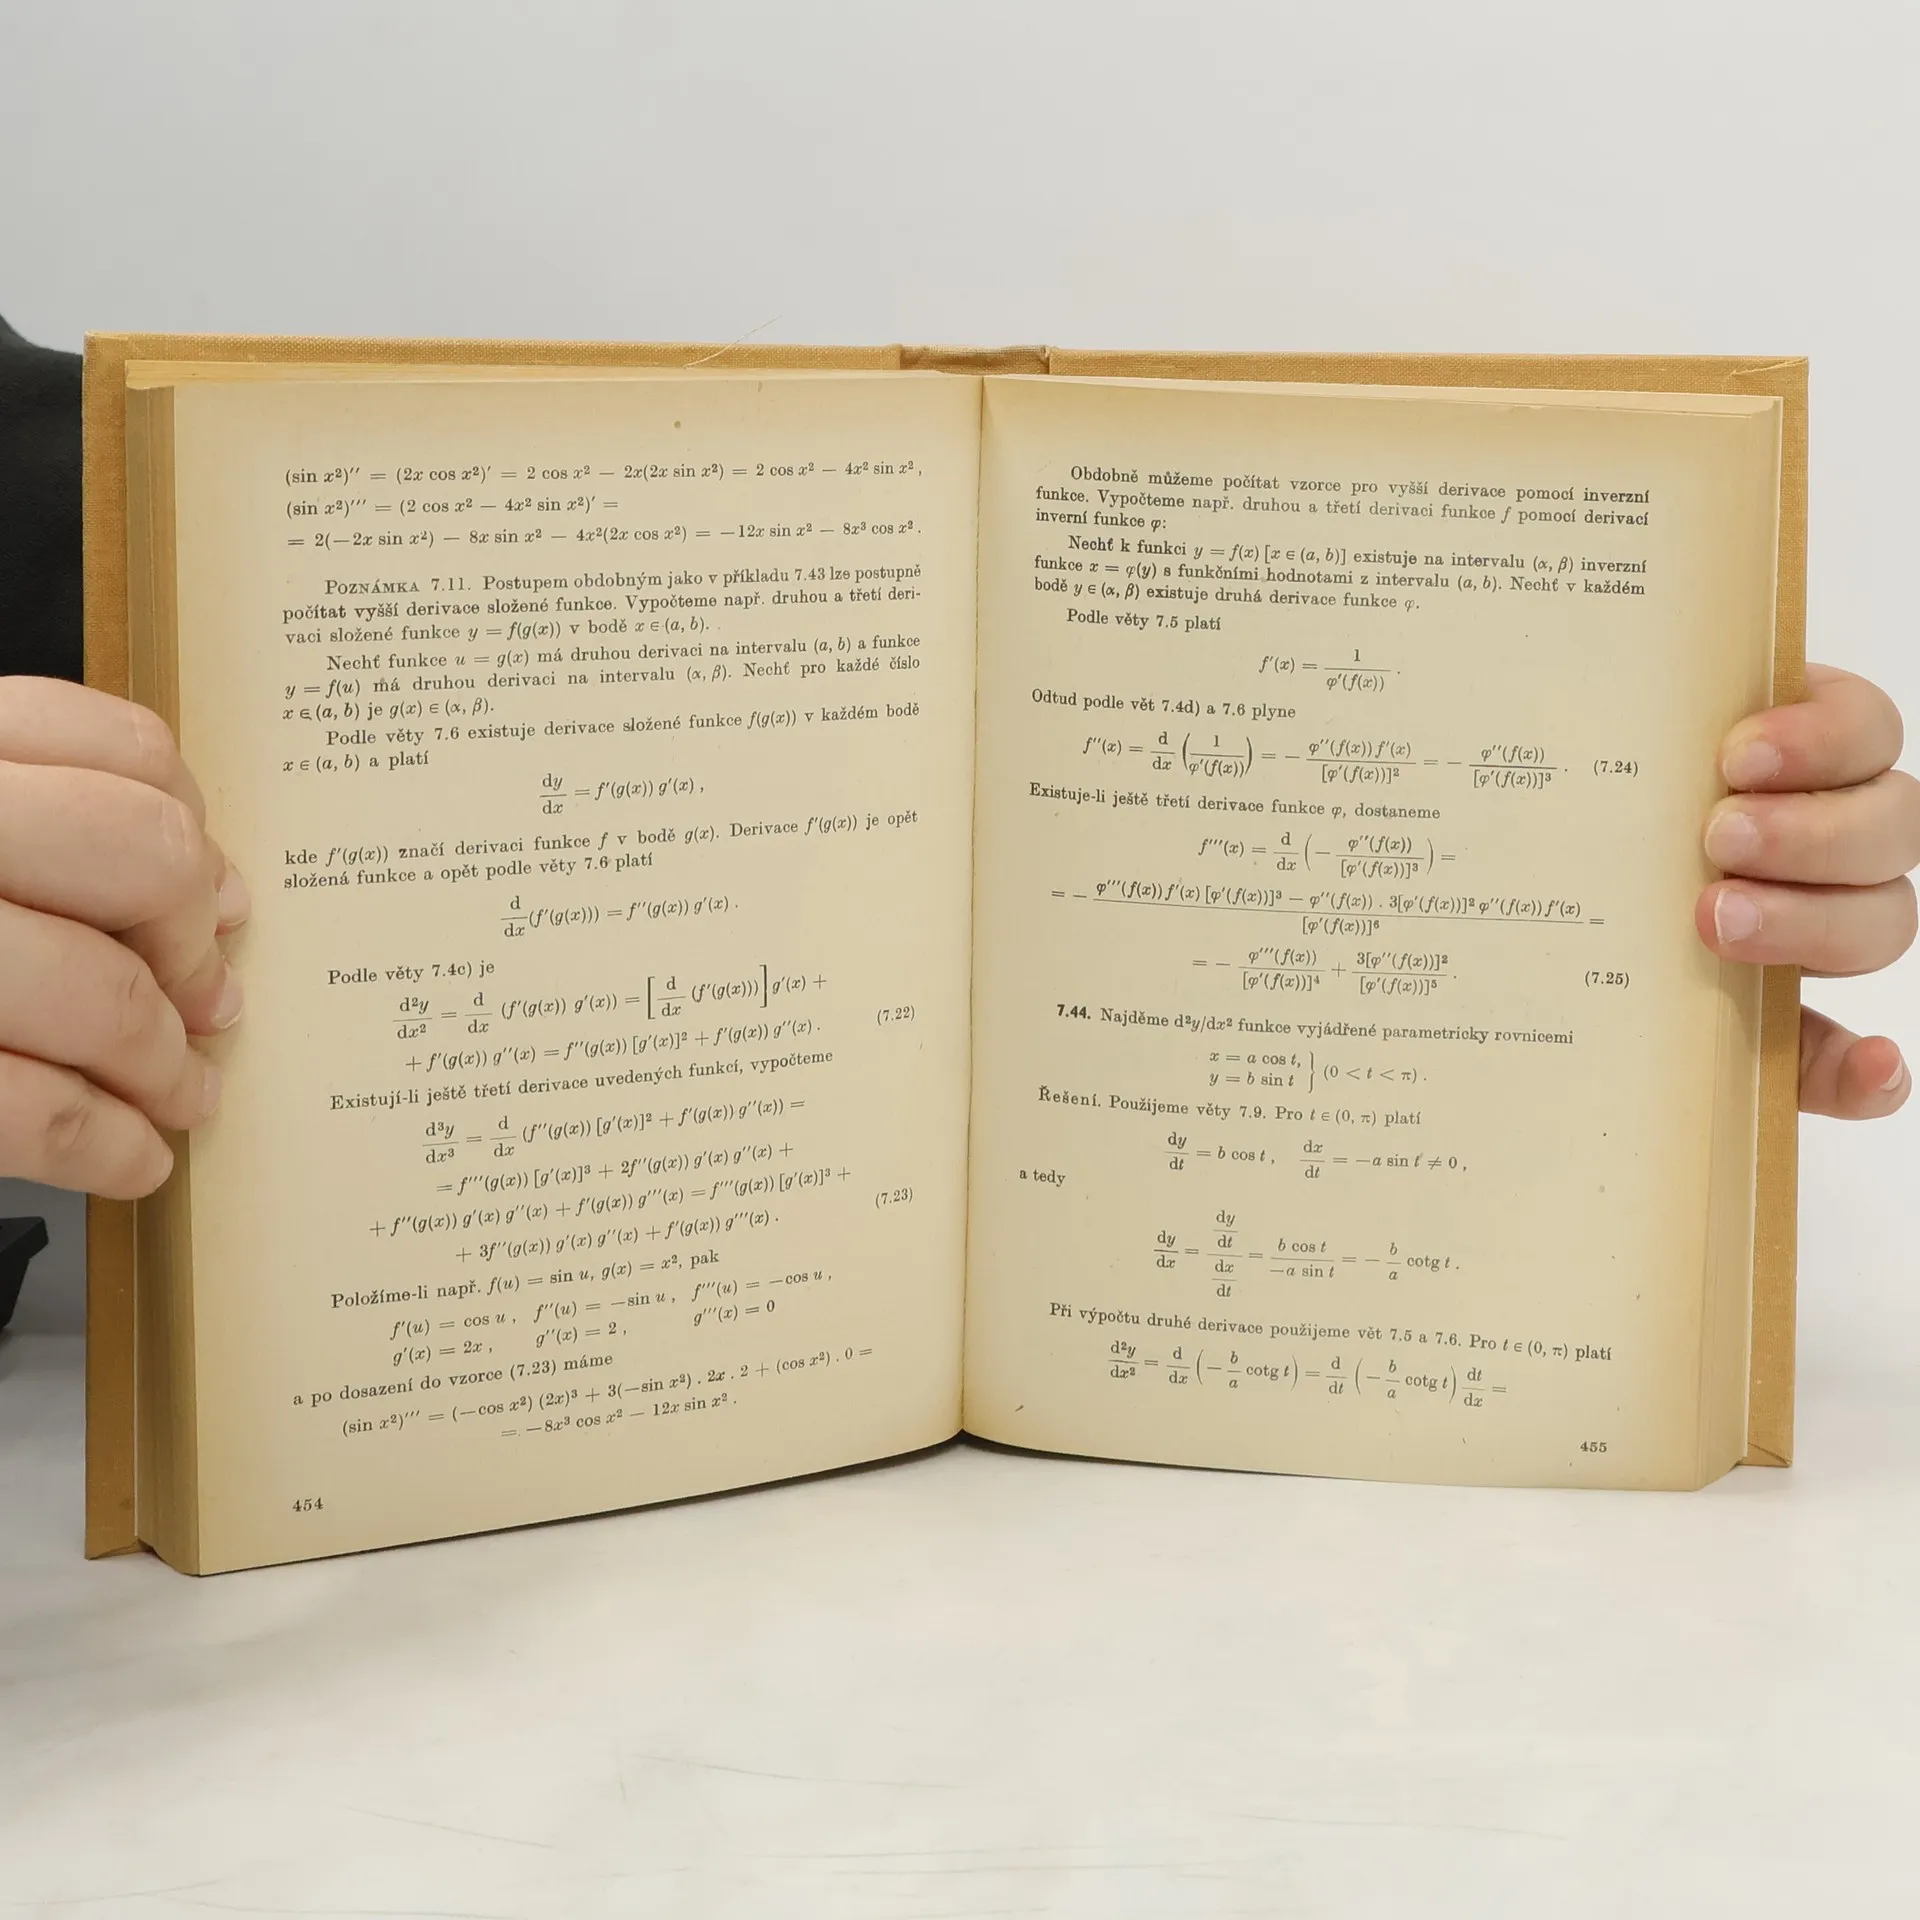 (sin x²)′′ = (2x cos x²)′ = 2 cos x² − 2x(2x sin x²) = 2 cos x² − 4x² sin x² ,
(sin x²)′′′ = (2 cos x² − 4x² sin x²)′ =
= 2(−2x sin x²) − 8x sin x² − 4x²(2x cos x²) = −12x sin x² − 8x³ cos x² .
POZNÁMKA 7.11. Postupem obdobným jako v příkladu 7.43 lze postupně
počítat vyšší derivace složené funkce. Vypočteme např. druhou a třetí deri-
vaci složené funkce y = f(g(x)) v bodě x ∈ (a, b).
Nechť funkce u = g(x) má druhou derivaci na intervalu (a, b) a funkce
y = f(u) má druhou derivaci na intervalu (α, β). Nechť pro každé číslo
x ∈ (a, b) je g(x) ∈ (α, β).
Podle věty 7.6 existuje derivace složené funkce f(g(x)) v každém bodě
x ∈ (a, b) a platí
dy/dx = f′(g(x)) g′(x) ,
kde f′(g(x)) značí derivaci funkce f v bodě g(x). Derivace f′(g(x)) je opět
složená funkce a opět podle věty 7.6 platí
d/dx (f′(g(x))) = f′′(g(x)) g′(x) .
Podle věty 7.4c) je
d²y/dx² = d/dx (f′(g(x)) g′(x)) = [d/dx (f′(g(x)))] g′(x) +
+ f′(g(x)) g′′(x) = f′′(g(x)) [g′(x)]² + f′(g(x)) g′′(x) . (7.22)
Existují-li ještě třetí derivace uvedených funkcí, vypočteme
d³y/dx³ = d/dx (f′′(g(x)) [g′(x)]² + f′(g(x)) g′′(x)) =
= f′′′(g(x)) [g′(x)]³ + 2f′′(g(x)) g′(x) g′′(x) +
+ f′′(g(x)) g′(x) g′′(x) + f′(g(x)) g′′′(x) = f′′′(g(x)) [g′(x)]³ +
+ 3f′′(g(x)) g′(x) g′′(x) + f′(g(x)) g′′′(x) . (7.23)
Položíme-li např. f(u) = sin u, g(x) = x², pak
f′(u) = cos u , f′′(u) = −sin u , f′′′(u) = −cos u ,
g′(x) = 2x , g′′(x) = 2 , g′′′(x) = 0
a po dosazení do vzorce (7.23) máme
(sin x²)′′′ = (−cos x²) (2x)³ + 3(−sin x²) . 2x . 2 + (cos x²) . 0 =
= −8x³ cos x² − 12x sin x² .
454
Obdobně můžeme počítat vzorce pro vyšší derivace pomocí inverzní
funkce. Vypočteme např. druhou a třetí derivaci funkce f pomocí derivací
inverní funkce φ:
Nechť k funkci y = f(x) [x ∈ (a, b)] existuje na intervalu (α, β) inverzní
funkce x = φ(y) s funkčními hodnotami z intervalu (a, b). Nechť v každém
bodě y ∈ (α, β) existuje druhá derivace funkce φ.
Podle věty 7.5 platí
f′(x) = 1/φ′(f(x)) .
Odtud podle vět 7.4d) a 7.6 plyne
f′′(x) = d/dx (1/φ′(f(x))) = − φ′′(f(x)) f′(x)/[φ′(f(x))]² = − φ′′(f(x))/[φ′(f(x))]³ . (7.24)
Existuje-li ještě třetí derivace funkce φ, dostaneme
f′′′(x) = d/dx (− φ′′(f(x))/[φ′(f(x))]³) =
= − φ′′′(f(x)) f′(x) [φ′(f(x))]³ − φ′′(f(x)) . 3[φ′(f(x))]² φ′′(f(x)) f′(x)/[φ′(f(x))]⁶ =
= − φ′′′(f(x))/[φ′(f(x))]⁴ + 3[φ′′(f(x))]²/[φ′(f(x))]⁵ . (7.25)
7.44. Najděme d²y/dx² funkce vyjádřené parametricky rovnicemi
x = a cos t,
y = b sin t } (0 < t < π) .
Řešení. Použijeme věty 7.9. Pro t ∈ (0, π) platí
dy/dt = b cos t , dx/dt = −a sin t ≠ 0 ,
a tedy
dy/dx = (dy/dt)/(dx/dt) = b cos t/−a sin t = − b/a cotg t .
Při výpočtu druhé derivace použijeme vět 7.5 a 7.6. Pro t ∈ (0, π) platí
d²y/dx² = d/dx (− b/a cotg t) = d/dt (− b/a cotg t) dt/dx =
455